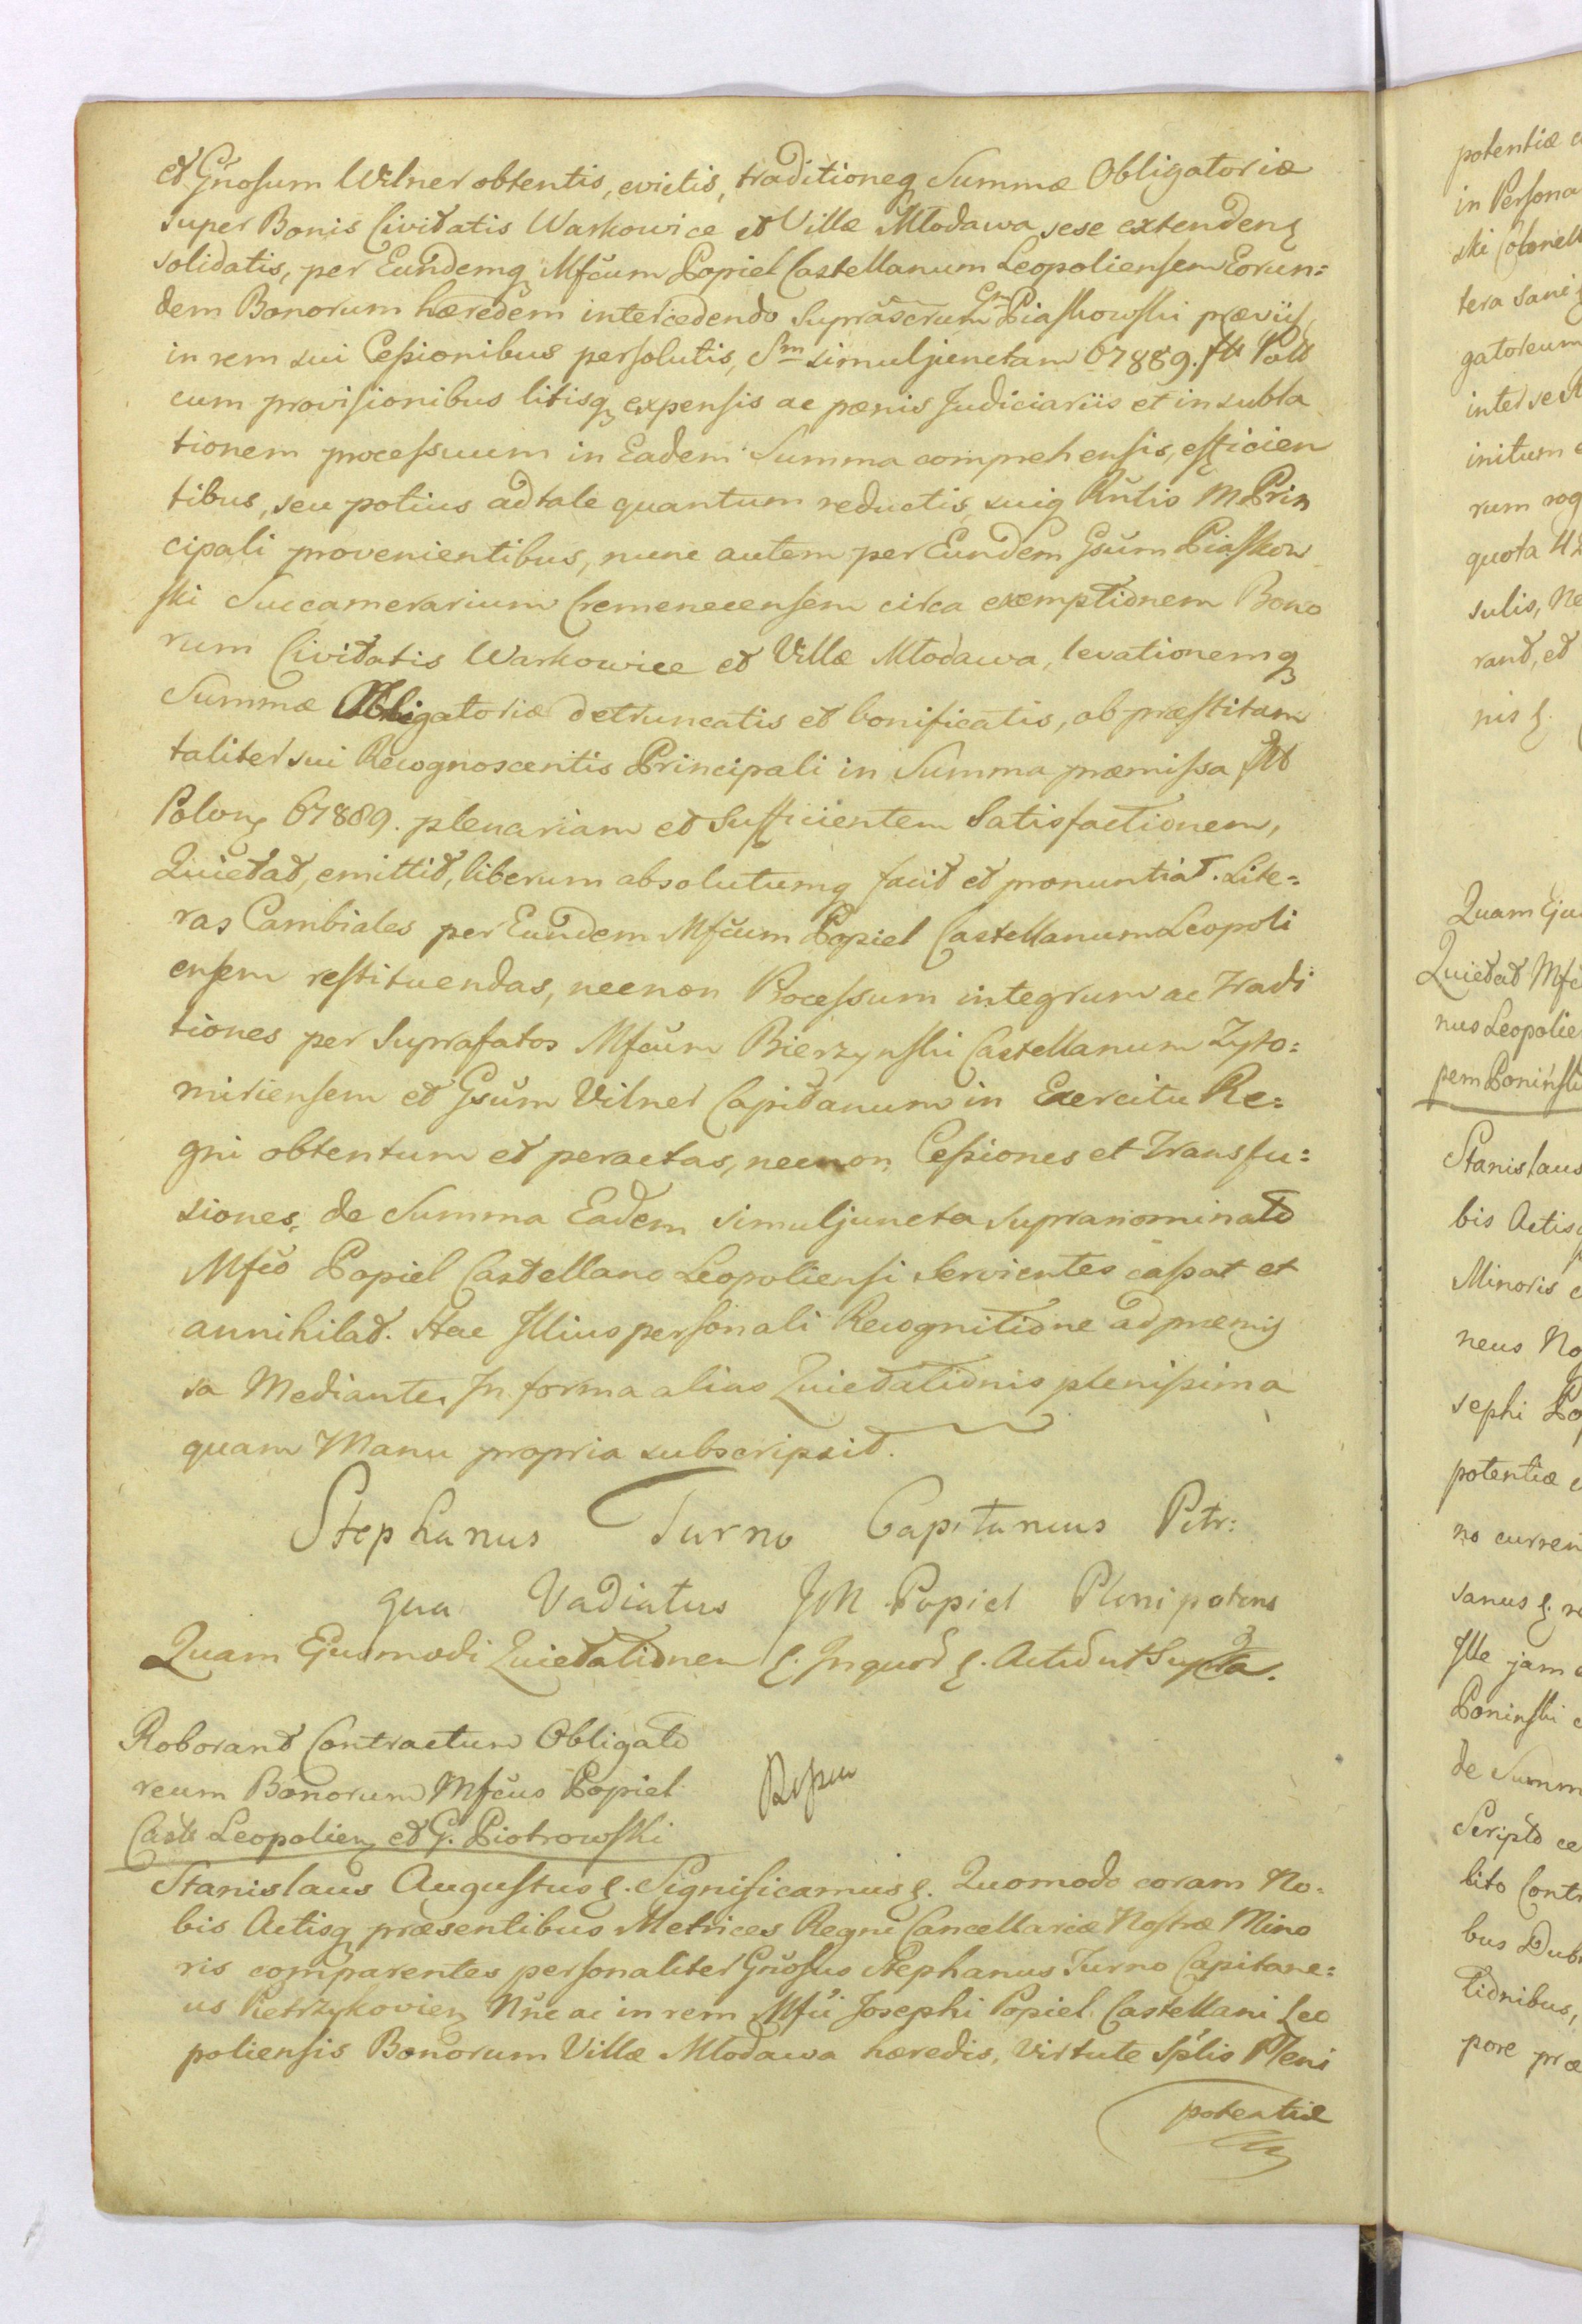 et Gnosum Wilner obtentis, evictis, traditioneq Summæ Obligatoriæ
super Bonis Civitatis Warkowice et Villæ Młodawa sese extendenę
solidatis, per Eundemq Mfcum Popiel Castellanum Leopoliensem Eorun=
dem Bonorum hæredem intercedendo Suprascrum Gm Piaskowski præviis
in rem sui Cessionibus persolutis, Sm simuljunctam 67889. flł Poll
cum provisionibus litisq expensis ac pænis Judiciariis et in subla
tionem processuum in Eadem Summa comprehensis, efficien
tibus, seu potius ad tale quantum reductis, suiq Rntis M. Prin
cipali provenientibus, nunc autem per Eundem Gsum Piaskow
ski Succamerarium Cremenecensem circa exemptionem Bono
rum Civitatis Warkowice et Villæ Młodawa, levationemq
Summæ Obligatoriæ detruncatis et bonificatis, ob præstitam
taliter sui Recognoscentis Principali in Summa præmissa flł
Polonę 67889. plenariam et Sufficientem Satisfactionem,
Quietat, emittit, liberum absolutumq facit et pronuntiat. Lite=
ras Cambiales per Eundem Mfcum Popiel Castellanum Leopoli
ensem restituendas, necnon Processum integrum ac Tradi
tiones per Suprafatos Mfcum Bierzynski Castellanum Zyto=
miriensem et Gsum Vilner Capitanum in Exercitu Re=
gni obtentum et peractas, necnon Cessiones et Transfu=
siones, de Summa Eadem simuljuncta supranominato
Mfco Popiel Castellano Leopoliensi Servientes cassat et
annihilat. Hac Illius personali Recognitione ad præmis
sa Mediante. In forma alias Quietationis plenissima
quam Manu propria subscripsit.
Stephanus Turno Capitaneus Petr:
qua Vadiatus JM Popiel Plenipotens
Quam Ejusmodi Quietationem ę. In quod ę. Act ut Supra.
Roborant Contractum Obligato
reum Bonorum Mfcus Popiel
Castł Leopolienę et G. Piotrowski
Stanislaus Augustus ę. Significamus ę. Quomodo coram No=
bis Actisq præsentibus Metrices Regni Cancellariæ Nostræ Mino
ris comparentes personaliter Gnosus Stephanus Turno Capitane=
us Pietrzykovienę Nne ac in rem Mfci Josephi Popiel Castellani Leo
poliensis Bonorum Villæ Młodawa hæredis, virtute Splis Pleni
potentiæ
potentiæ
in Persona
ski Colonell
gatoreum
initum
rum rog
quota
sulis, Ne
rant, et
nis ę.
Quam Ejus
Quietat Mfc
nus Leopolie
pem Poninsk
Stanislaus
bis Actisq
Minoris
neus No
sephi Po
potentiæ
no curren
sanus ę.
Ille jam
Poninski
de Summ
Scripto
bito Contr
bus Dub
tionibus,
pore præ